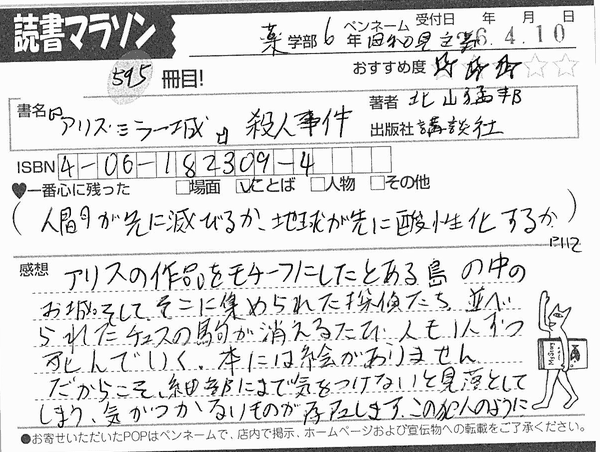 読書マラソン
薬学部 6年 ペンネーム 日和見 受付日 6年 4月 10日
595冊目! おすすめ度 ★★★☆☆
書名『アリス・ミラー城』殺人事件 著者 北山猛邦
出版社 講談社
ISBN 4-06-182309-4
♥一番心に残った □場面 ☑ことば □人物 □その他
(人間が先に滅びるか、地球が先に酸性化するか)
P112
感想 アリスの作品をモチーフにしたとある島の中の
お城。そして、そこに集められた探偵たち。並べ
られたチェスの駒が消えるたび、人も1人ずつ
死んでいく。本には絵がありません。
だからこそ、細部にまで気をつけないと見落として
しまう、気がつかないものが存在します。この犯人のように
●お寄せいただいたPOPはペンネームで、店内で掲示、ホームページおよび宣伝物への転載をご了承ください。